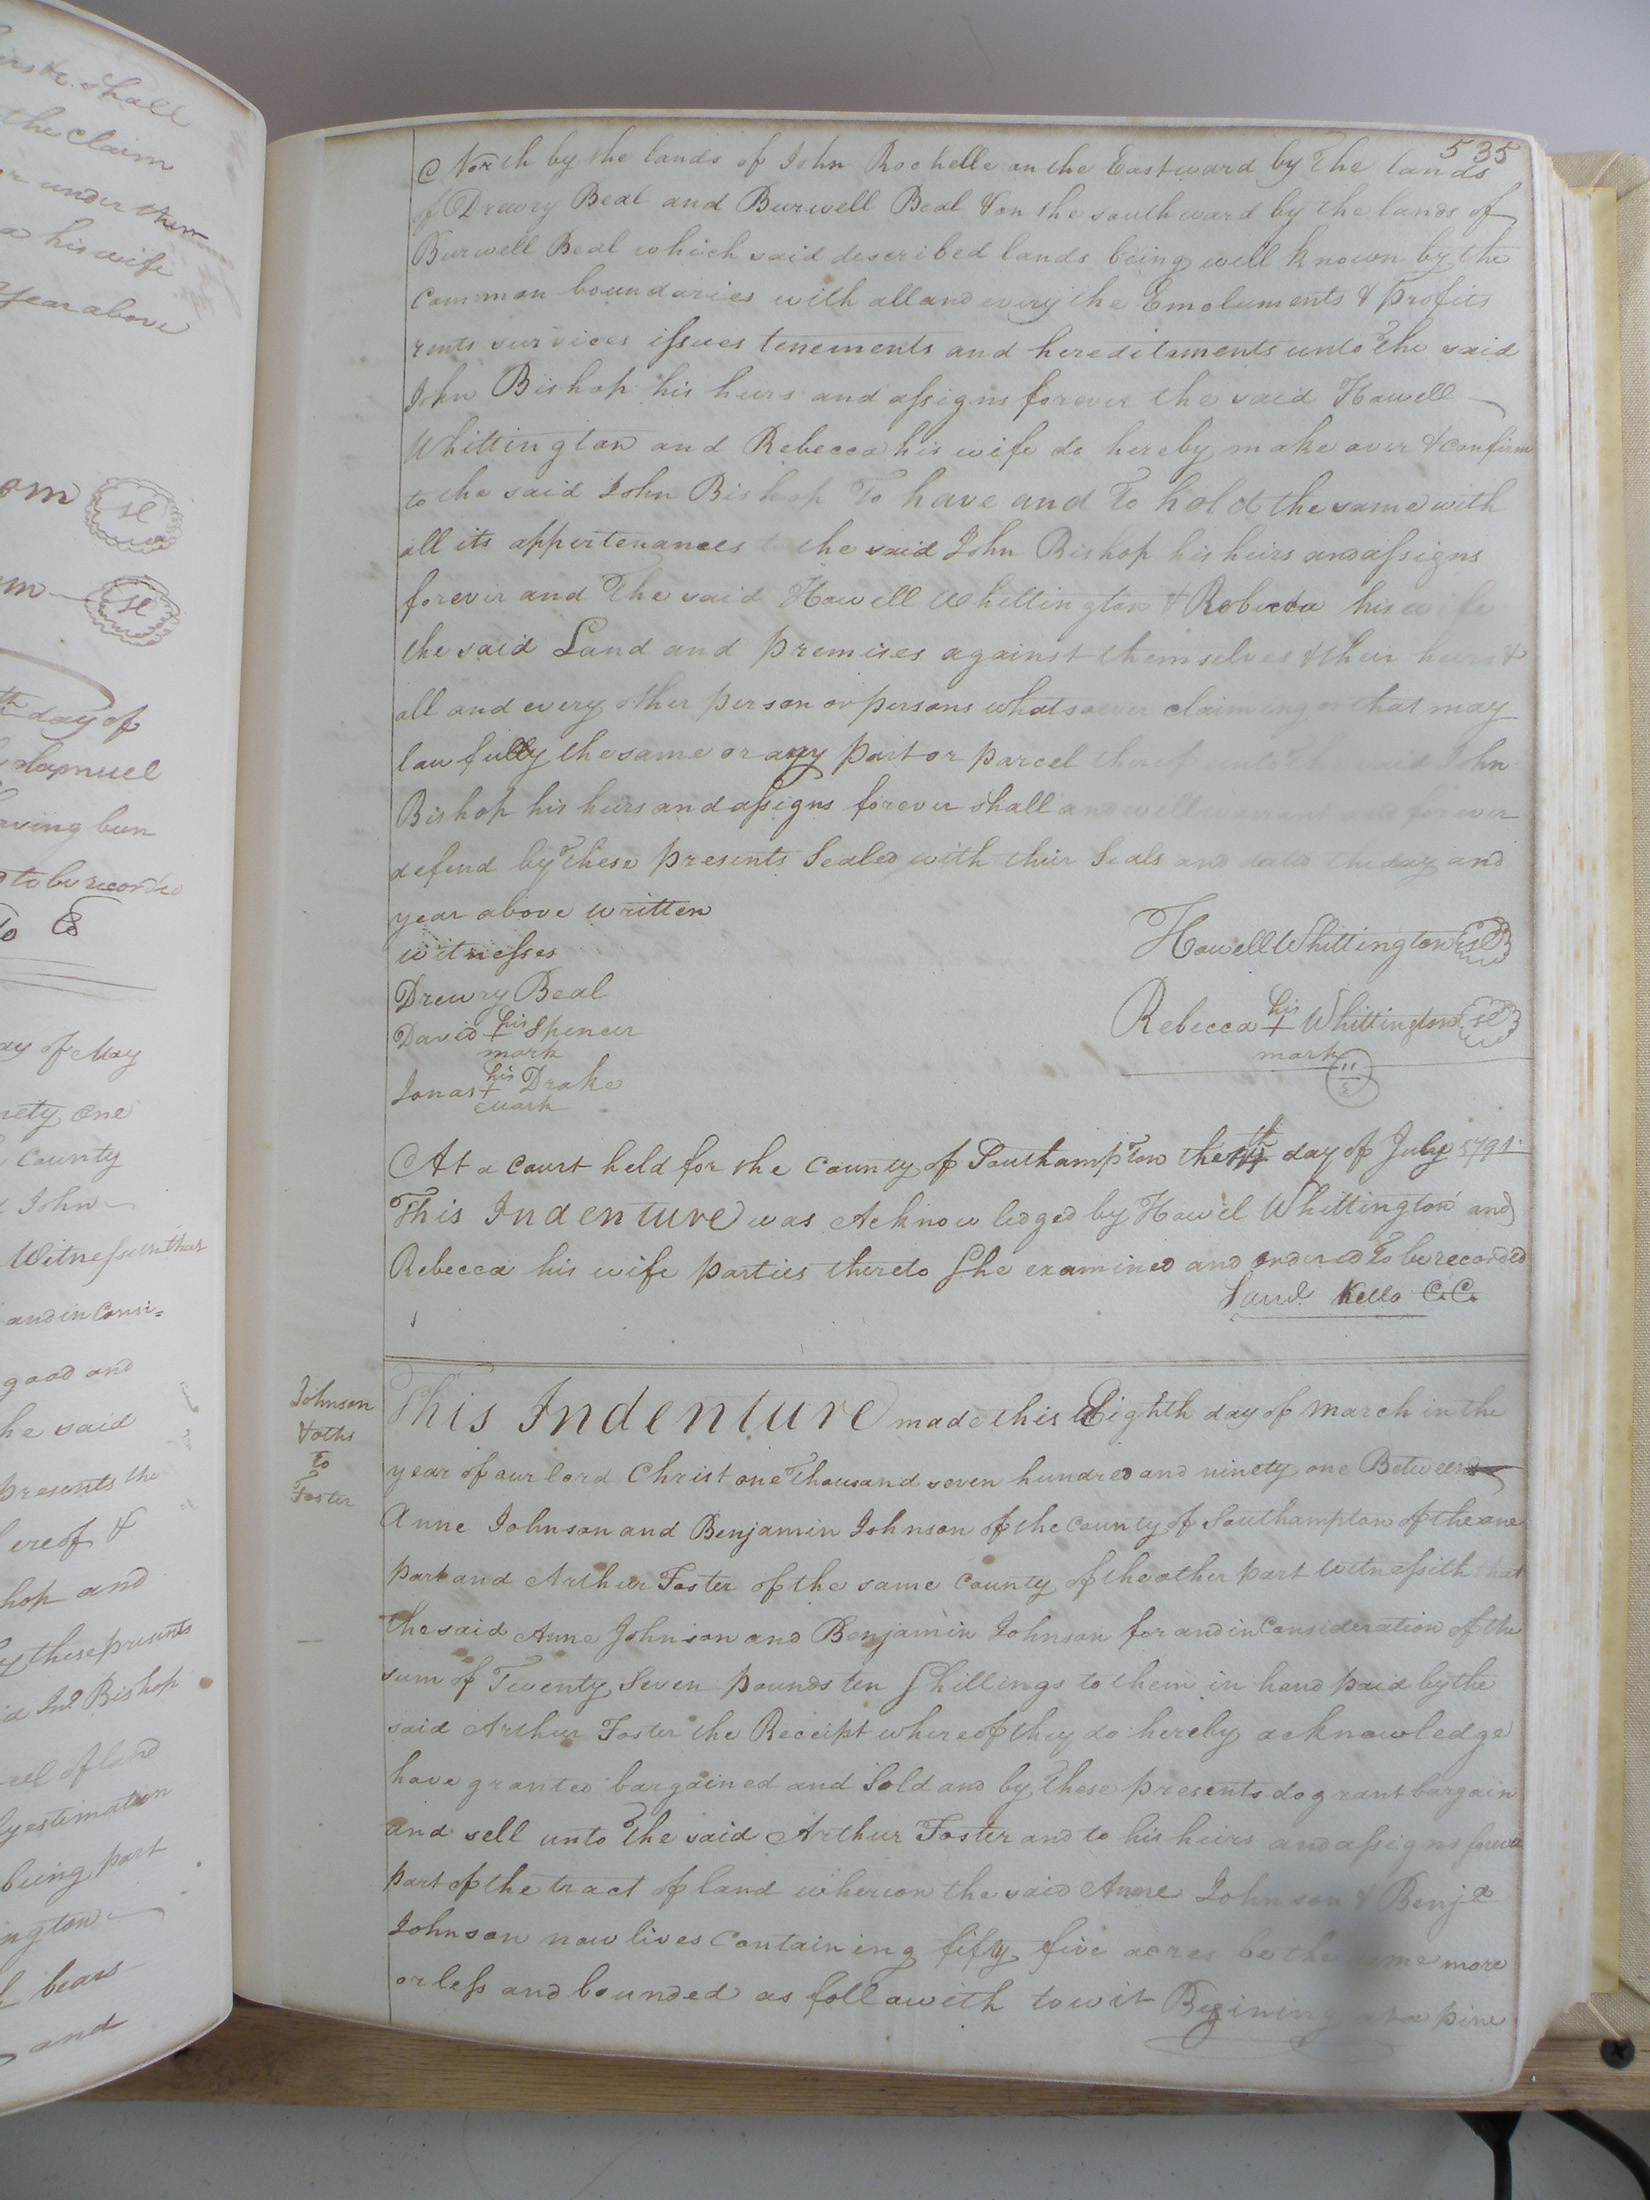 irs &c. shall
the claim
or under them
a his wife
Year above
om se
m se
th day of
Samuel
aving been
d to be recorded
To Co
ay of May
nety one
County
John
Witnesseth that
and in Consi=
good and
he said
presents the
ereof &
hop and
y these presents
id Jno. Bishop
cel of land
by estimation
being part
ington
bears
and
535
North by the lands of John Rochelle on the Eastward by The lands
of Drewry Beal and Burwell Beal & on the southward by the lands of
Burwell Beal which said described lands being well known by the
Common boundaries with all and every the Emoluments & profits
rents survices issues tenements and hereditaments unto The said
John Bishop his heirs and assigns forever the said Howell
Whittington and Rebecca his wife do hereby make over & confirm
to the said John Bishop To have and To hold the same with
all its appertenances to the said John Bishop his heirs and assigns
forever and The said Howell Whittington & Rebecca his wife
the said Land and premises against themselves & their heirs &
all and every other person or persons whatsoever claiming or that may
lawfully the same or any part or parcel thereof unto the said John
Bishop his heirs and assigns forever shall and will warrant and forever
defend by These presents Sealed with their Seals and dated the day and
year above written
witnesses
Howell Whittington se
Drewry Beal
David his + mark Spencer
Rebecca his + mark Whittington se
Jonas his + mark Drake
At a Court held for the County of Southampton the day of July 1791
This Indenture was Acknowledged by Howel Whittington and
Rebecca his wife parties thereto She examined and ordered To be recorded
Saml. Kello C.C.
Johnson
& oths
to
Foster
This Indenture made this Eighth day of March in the
year of our lord Christ one Thousand seven hundred and ninety one Between
Anne Johnson and Benjamin Johnson of the County of Southampton of the one
part and Arthur Foster of the same County of the other part Witnessith that
the said Anne Johnson and Benjamin Johnson for and in Consideration of the
sum of Twenty Seven pounds ten Shillings to them in hand paid by the
said Arthur Foster the Receipt whereof they do hereby acknowledge
have granted bargained and Sold and by These presents do grant bargain
and sell unto The said Arthur Foster and to his heirs and assigns forever
part of the tract of land whereon the said Anne Johnson & Benja
Johnson now lives Containing fifty five acres be the same more
or less and bounded as followith towit Begining at a pine